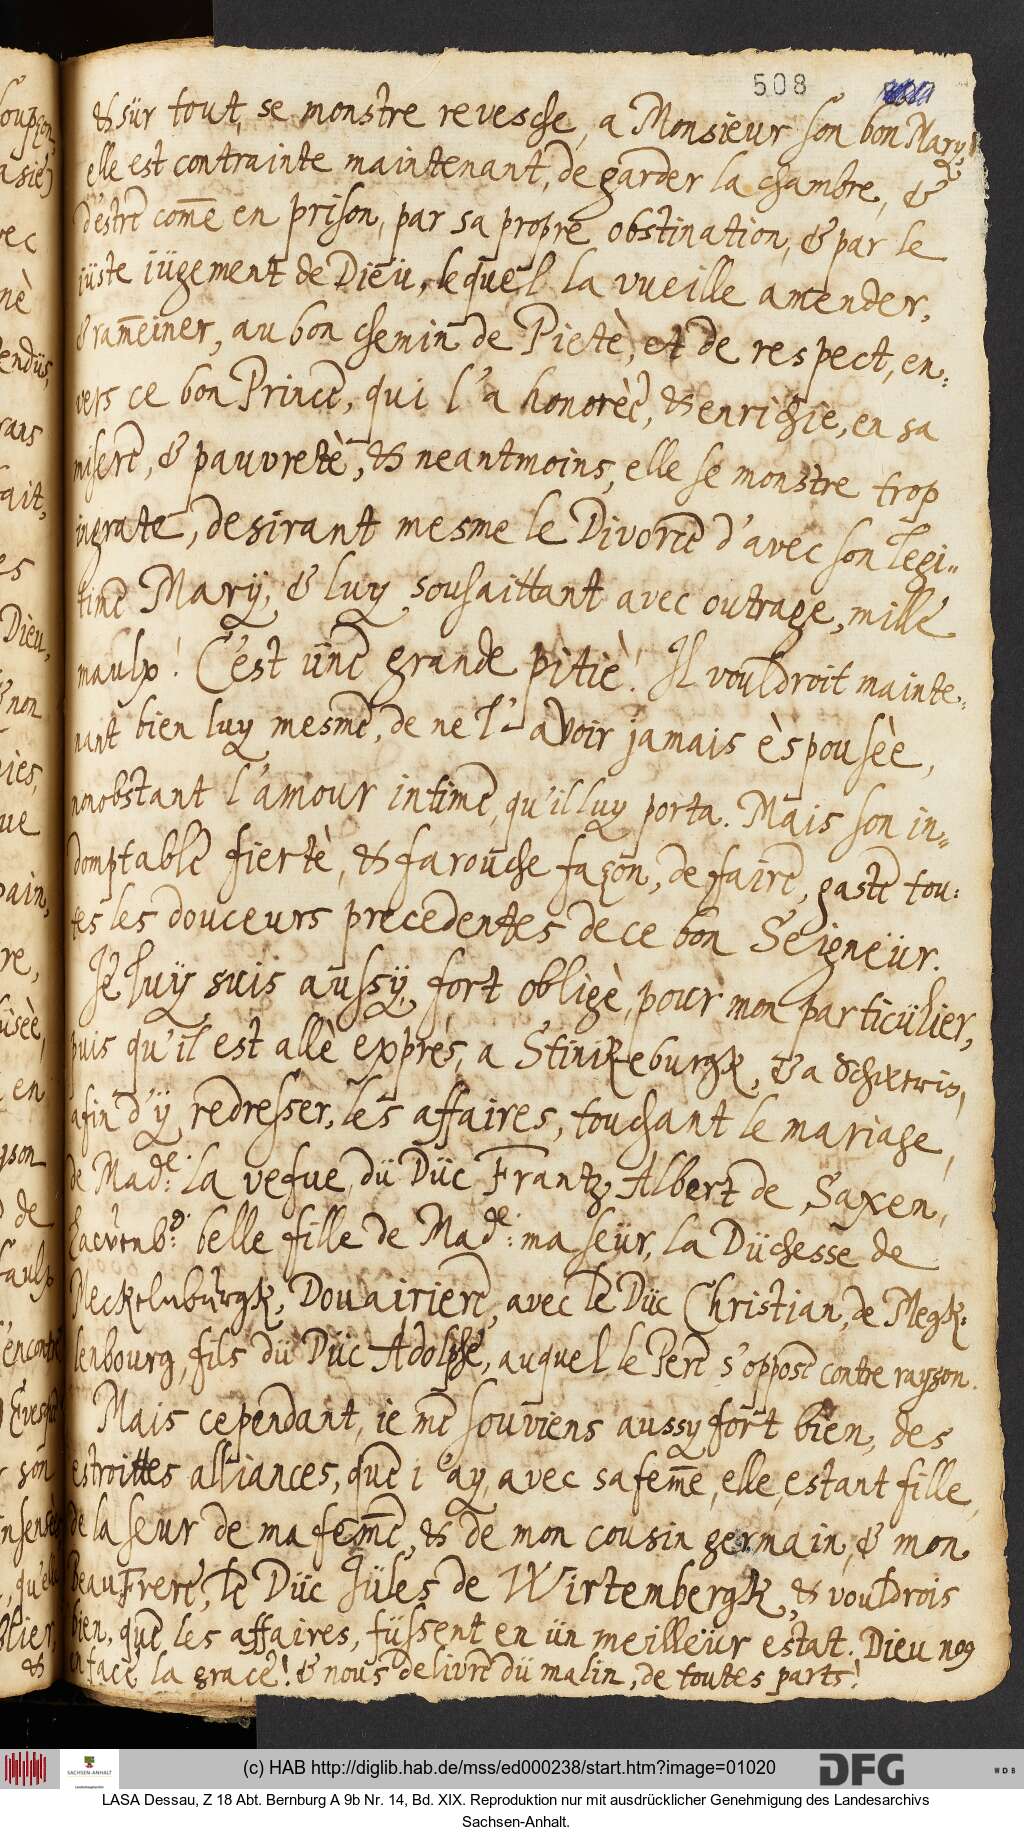 508
& sür tout, se monstre revesche, a Monsieur son bon Mary,
elle est contrainte maintenant, de garder la chambre, &
d'estre come̅ en prison, par sa propre obstination, & par le
iüste iügement de Dieu, lequel la vueille amender,
& ram̅einer, au bon chemin de Pietè, et de respect, en:
vers ce bon Prince, qui l'a honorèe, & enrichie, en sa
misere, & pauvretè, & neantmoins, elle se monstre trop
ingrate, desirant mesme le Divorce d'avec son legi-
time Marÿ, & luy souhaittant avec outrage, mille
maulx! C'est üne grande pitiè! Il vouldroit mainte-
nant bien luy mesme, de ne l'avoir jamais èspousèe,
nonobstant l'amour intime, qu'il luy porta. Mais son in-
domptable fiertè, & farouche façon, de faire, gaste tou:
tes les douceurs precedentes de ce bon Seigneür.
Je luÿ suis aussÿ, fort obligè, pour mon particülier,
puis qu'il est allè exprès, a Stinkeburgk, & a Schwerin,
afin d'ÿ redresser, les affaires, touchant le mariage,
de Made: la vefue dü Düc Frantz Albert de Saxen,
Lawenb: belle fille de Made: ma seür, la Düchesse de
Mecklenbürgk, Douairiere, avec le Düc Christian, de Megk:
lenbourg, fils dü Düc Adolphe, auquel le Pere s'oppose contre rayson.
Mais cependant, ie me souviens aussy fort bien, des
estroittes alliances, que i'ay, avec sa fem̅e, elle, estant fille,
de la seur de ma fem̅e, & de mon cousin germain, & mon
beauFrere, le Düc Jüles de Wirtembergk, & vouldrois
bien, que, les affaires, füssent en ün meilleür estat. Dieu no9
en face, la grace! & nous delivre dü malin, de toutes parts!
ans
ait,
es
Dieu,
& non
ve
re,
en
de
son
&
(c) HAB http://diglib.hab.de/mss/ed000238/start.htm?image=01020
SACHSEN-ANHALT
DFG
WDB
LASA Dessau, Z 18 Abt. Bernburg A 9b Nr. 14, Bd. XIX. Reproduktion nur mit ausdrücklicher Genehmigung des Landesarchivs
Sachsen-Anhalt.